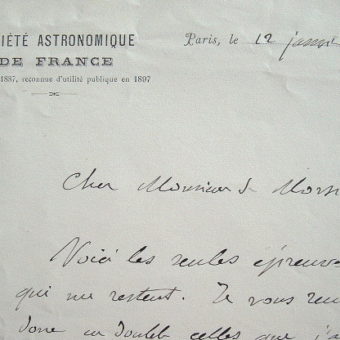 IÉTÉ ASTRONOMIQUE
DE FRANCE
1887, reconnue d'utilité publique en 1897
Paris, le 12 janvi
Cher Monsieur de
Voici les seules épreuves
qui me restent. Je vous
donc en double celles que j'a